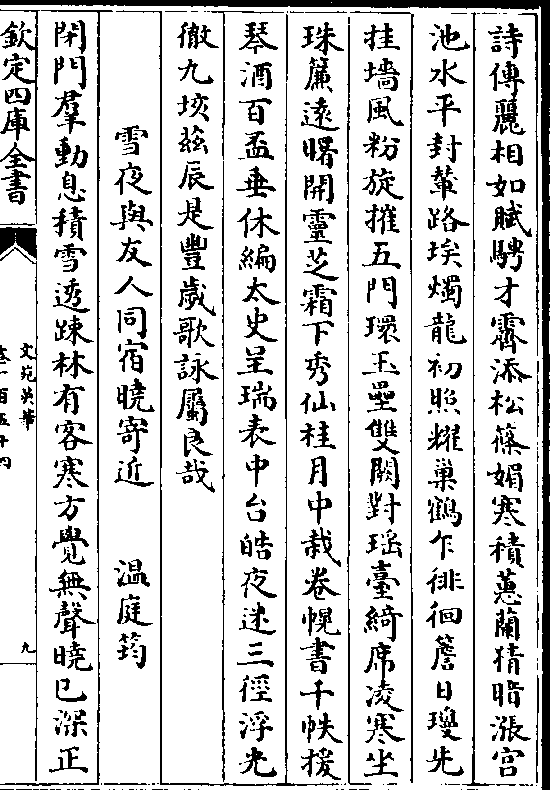 詩傳麗相如賦騁才霽添松篠媚寒積蕙蘭猜暗漲宮
池水平封輦路埃燭龍初照耀巢鶴乍徘徊簷日瓊先
挂墻風粉旋摧五門環玉壘雙闕對瑶臺綺席凌寒坐
珠簾遠曙開靈芝霜下秀仙桂月中栽卷幌書千帙援
琴酒百盃垂休編太史呈瑞表中台皓夜迷三徑浮光
徹九垓兹辰是豐歲歌詠屬良哉
雪夜與友人同宿曉寄近　温庭筠
閉門羣動息積雪透踈林有客寒方覺無聲曉已深正
欽定四庫全書
文苑英華
卷一百五十四
九